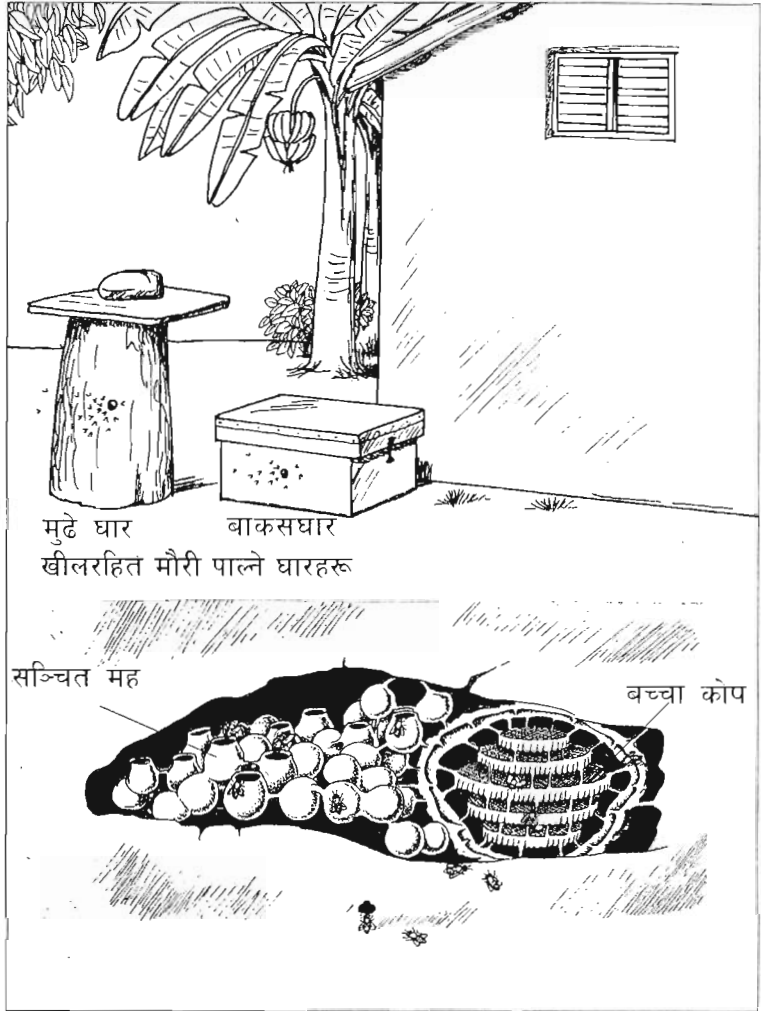 मुढे घार बाकसघार
खीलरहित मौरी पाल्ने घारहरू
सञ्चित मह
बच्चा कोप